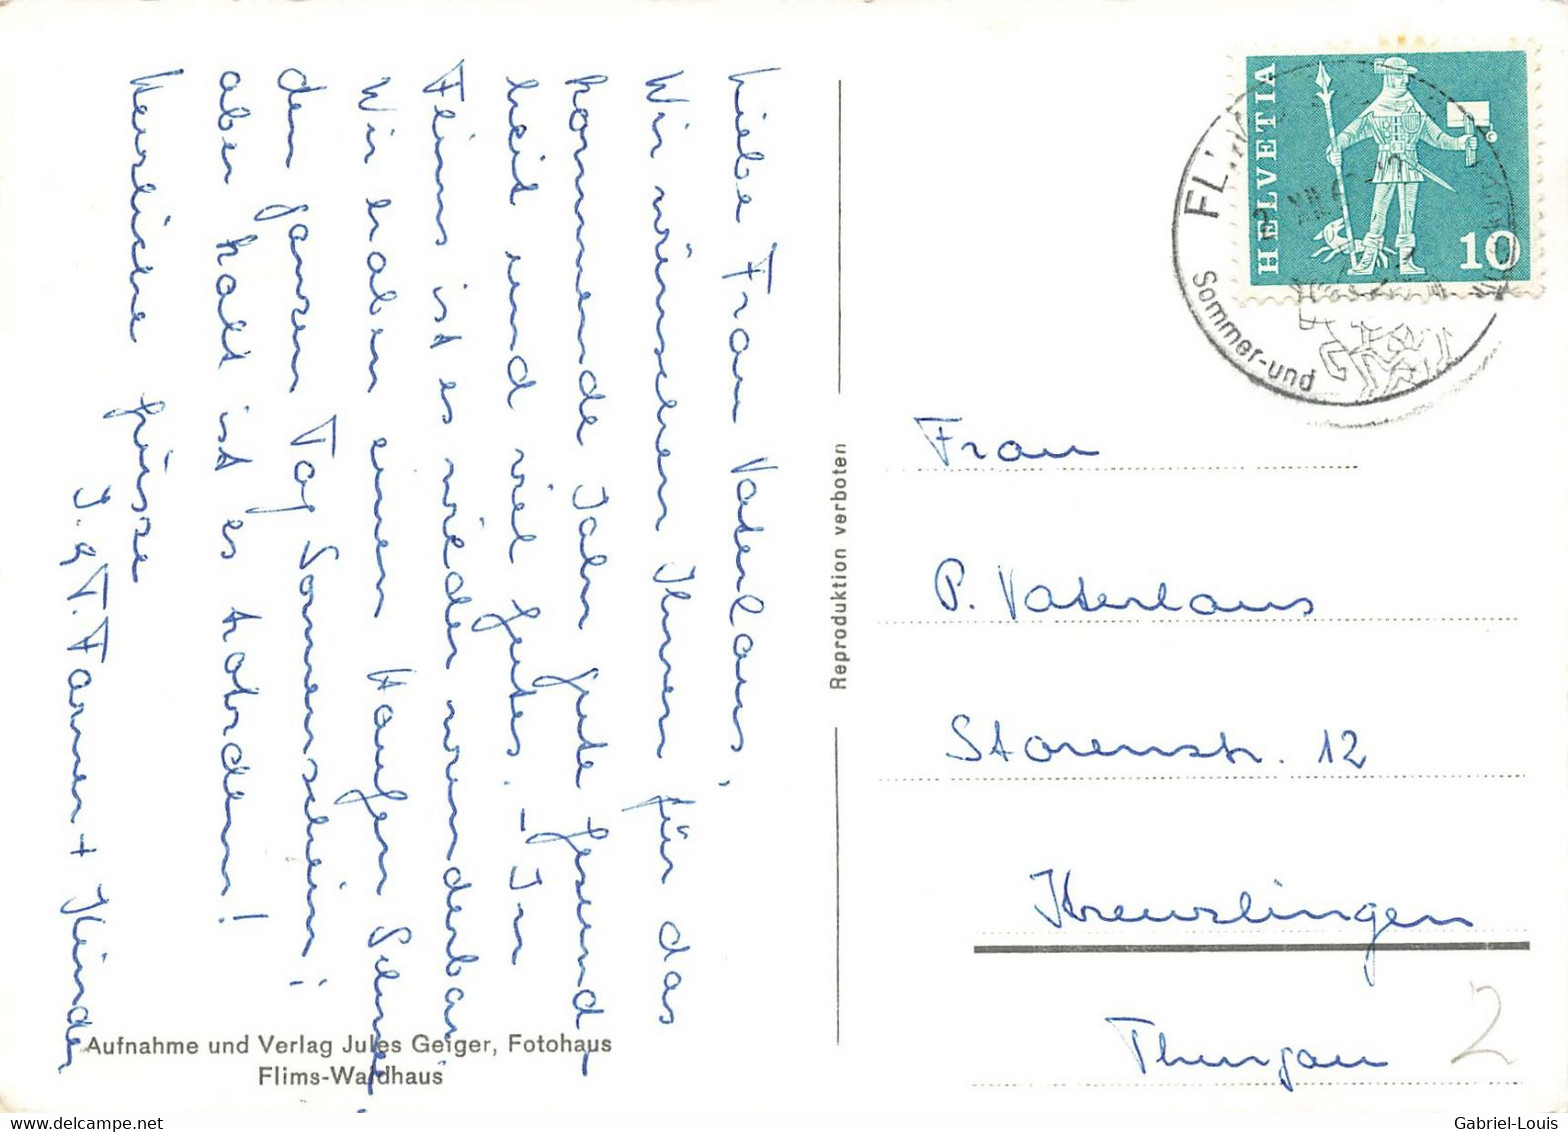 Liebe Frau Vaterlaus,
Wir wünschen Ihnen für das
kommende Jahr gute Gesund-
heit und viel gutes. – In
Flims ist es wieder wunderbar
Wir haben einen Haufen Schnee
den ganzen Tag Sonnenschein;
aber kalt ist es trotzdem!
Herzliche grüsse
J. & T. Farner + Kinder
Aufnahme und Verlag Jules Geiger, Fotohaus
Flims-Waldhaus
Reproduktion verboten
HELVETIA
10
FLIMS
Sommer-und
Frau
P. Vaterlaus
Storenstr. 12
Kreuzlingen
Thurgau
2
delcampe.net
Gabriel-Louis